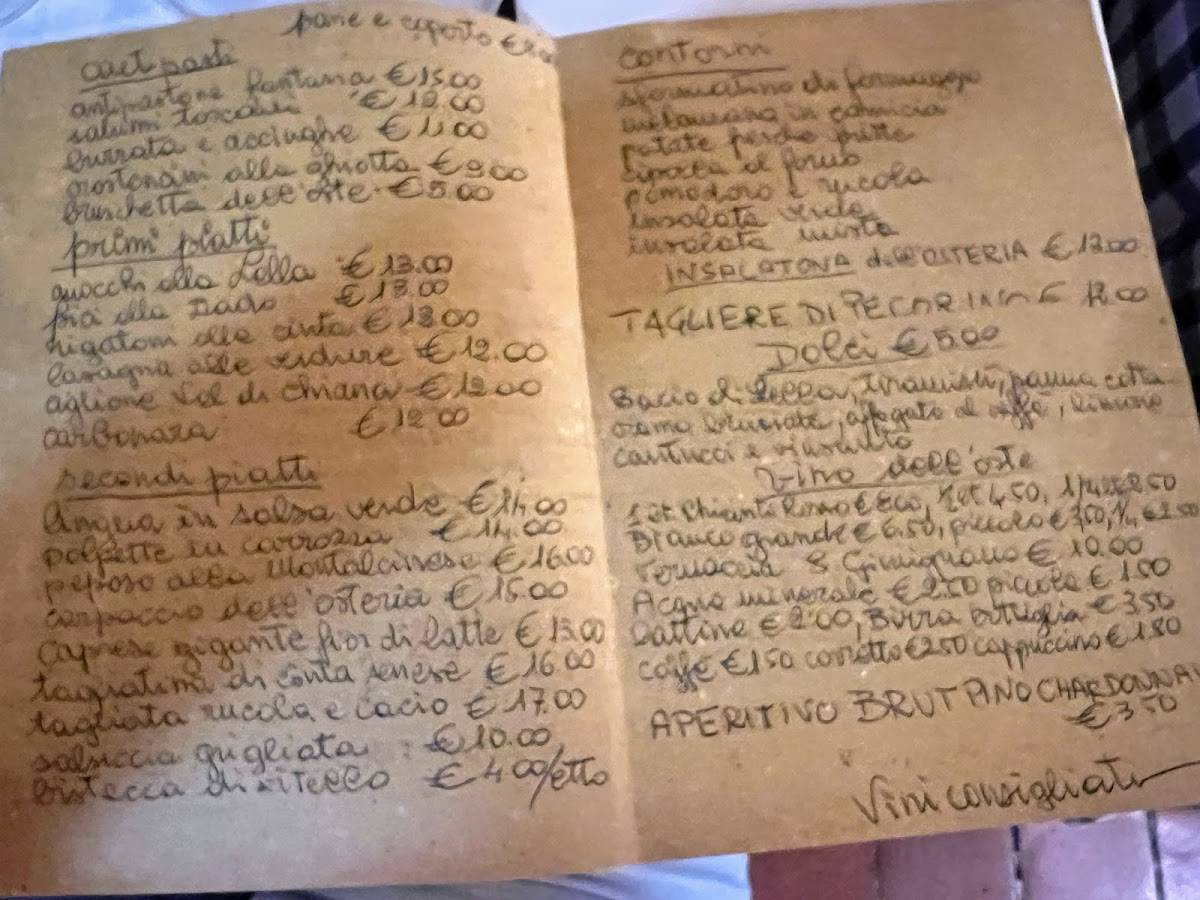 pane e coperto €2.00
antipasti
antipastone fontana €15.00
salumi toscani €12.00
burrata e acciughe €11.00
crostoncini alla ghiotta €9.00
bruschetta dell'oste €5.00
primi piatti
gnocchi alla Lella €13.00
pici alla Dado €13.00
rigatoni alla cinta €13.00
lasagna alle verdure €12.00
aglione Val di Chiana €12.00
carbonara €12.00
secondi piatti
lingua in salsa verde €14.00
polpette in carrozza €14.00
peposo alla Montalcinese €16.00
carpaccio dell'osteria €15.00
caprese gigante fior di latte €13.00
tagliatini di cinta senese €16.00
tagliata rucola e cacio €17.00
salsiccia grigliata €10.00
bistecca di vitello €4.00/etto
contorni
sformatino di formaggio
melanzana in camicia
patate fritte
cipolla al forno
pomodoro e rucola
insalata verde
insalata mista
INSALATONA dell'OSTERIA €12.00
TAGLIERE DI PECORINO € 12.00
Dolci €5.00
Bacio di Lella, tiramisù, panna cotta
crema bruciata, affogato al caffè,
cantucci e vinsanto
Vino dell'oste
Chianti Rosso 4.50, 2.50
Bianco grande €6.50, piccolo €3.50, 1/4 €2.50
Vernaccia S Gimignano € 10.00
Acqua minerale €2.50 piccola €1.50
Lattine €2.00, Birra bottiglia €3.50
caffè €1.50 corretto €2.50 cappuccino €1.80
APERITIVO BRUT PINO CHARDONNAY
€3.50
Vini consigliati